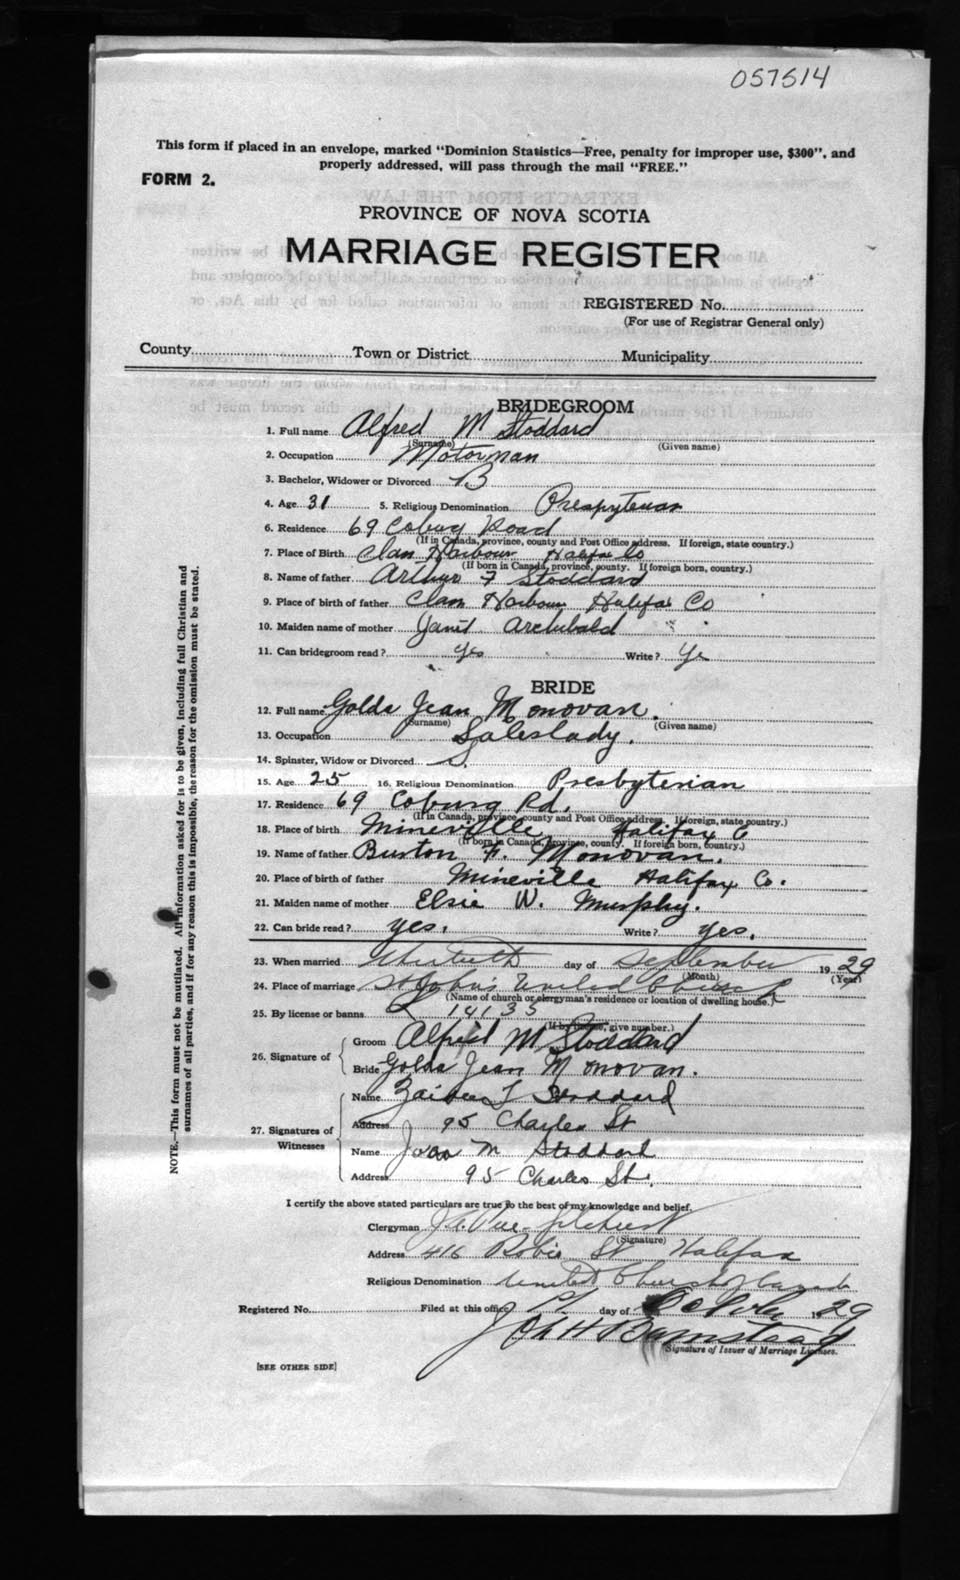 057514
This form if placed in an envelope, marked "Dominion Statistics—Free, penalty for improper use, $300", and
properly addressed, will pass through the mail "FREE."
FORM 2.
PROVINCE OF NOVA SCOTIA
MARRIAGE REGISTER
REGISTERED No.
(For use of Registrar General only)
County Town or District Municipality
BRIDEGROOM
1. Full name Alfred M Stoddard
(Surname) (Given name)
2. Occupation Motorman
3. Bachelor, Widower or Divorced B
4. Age 31 5. Religious Denomination Presbyterian
6. Residence 69 Coburg Road
(If in Canada, province, county and Post Office address. If foreign, state country.)
7. Place of Birth Clam Harbour Halifax Co
(If born in Canada, province, county. If foreign born, country.)
8. Name of father Arthur F Stoddard
9. Place of birth of father Clam Harbour Halifax Co
10. Maiden name of mother Janet Archibald
11. Can bridegroom read? Yes Write? Ye
BRIDE
12. Full name Golda Jean Monovan.
(Surname) (Given name)
13. Occupation Saleslady.
14. Spinster, Widow or Divorced S.
15. Age 25 16. Religious Denomination Presbyterian
17. Residence 69 Coburg Rd.
(If in Canada, province, county and Post Office address. If foreign, state country.)
18. Place of birth Mineville Halifax Co
(If born in Canada, province, county. If foreign born, country.)
19. Name of father Burton F. Monovan.
20. Place of birth of father Mineville Halifax Co.
21. Maiden name of mother Elsie W. Murphy.
22. Can bride read? yes. Write? yes.
23. When married day of September 1929
(Month) (Year)
24. Place of marriage St John's United Church
(Name of church or clergyman's residence or location of dwelling house.)
25. By license or banns L 14135
(If by license, give number.)
26. Signature of
Groom Alfred M Stoddard
Bride Golda Jean Monovan.
27. Signatures of Witnesses
Name Stoddard
Address 95 Charles St
Name M Stoddard
Address 95 Charles St.
I certify the above stated particulars are true to the best of my knowledge and belief.
Clergyman
(Signature)
Address 416 Robie St Halifax
Religious Denomination United Church of Canada
Registered No. Filed at this office day of October 1929
Signature of Issuer of Marriage Licenses.
[SEE OTHER SIDE]
NOTE.—This form must not be mutilated. All information asked for is to be given, including full Christian and
surnames of all parties, and if for any reason this is impossible, the reason for the omission must be stated.